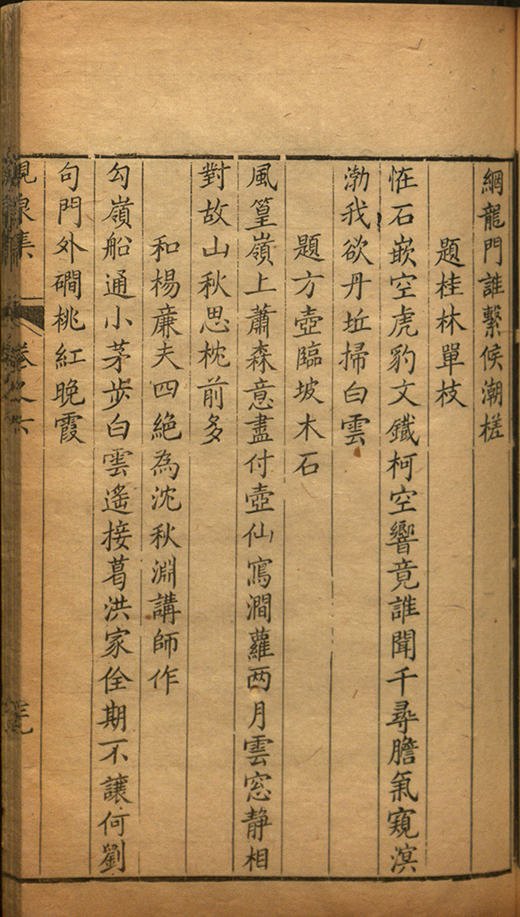 網龍門誰繫候潮槎
題桂林單枝
恠石嵌空虎豹文鐵柯空響竟誰聞千尋膽氣窺溟
渤我欲丹丘掃白雲
題方壺臨坡木石
風篁嶺上蕭森意盡付壺仙寫澗蘿兩月雲窓静相
對故山秋思枕前多
和楊廉夫四絕為沈秋淵講師作
勾嶺船通小茅步白雲遙接葛洪家佺期不讓何劉
句門外磵桃紅晚霞